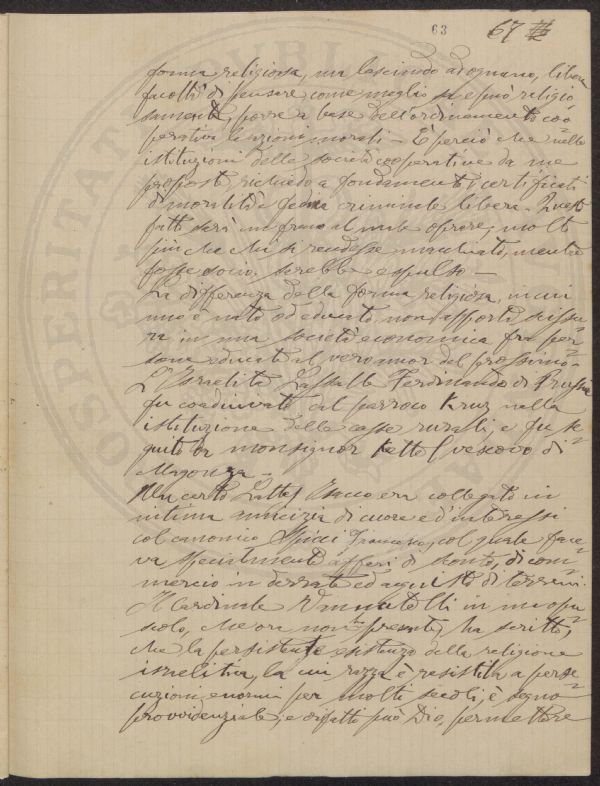 63 67
forma religiosa, ma lasciando ad ognuno, libera
facoltà di pensare come meglio sa e può religio
samente, porre a base dell'ordinamento coo
perativo le azioni morali - È perciò che nelle
istituzioni delle società cooperative da me
proposte richiedo a fondamento i certificati
di moralità e fedina criminale libera. Questo
fatto sarà un freno al male oprare, molto
più che chi si rendesse macchiato, mentre
fosse socio, sarebbe espulso -
La differenza della forma religiosa, in cui
uno è nato od educato, non apporta scissu
ra in una società economica fra per
sone educate al vero amor del prossimo -
L'Israelita Lassalle Ferdinando di Prussia
fu coadiuvato dal parroco Kruz nella
istituzione delle casse rurali, e fu se
guito da monsignor Kettel vescovo di
Magonza -
Un certo Lattes Isacco era collegato in
intima amicizia di cuore e d'interessi
col canonico Francesco, col quale face
va specialmente affari di sconto, di com
mercio in derrate ed acquisto di terreni.
Il Cardinale Vannutelli in un opu
scolo, che ora non presente, ha scritto,
che la persistente esistenza della religione
israelitica, la cui razza è resistita a perse
cuzioni enormi per molti secoli, è segno
provvidenziale, e difatti può Dio, permettere